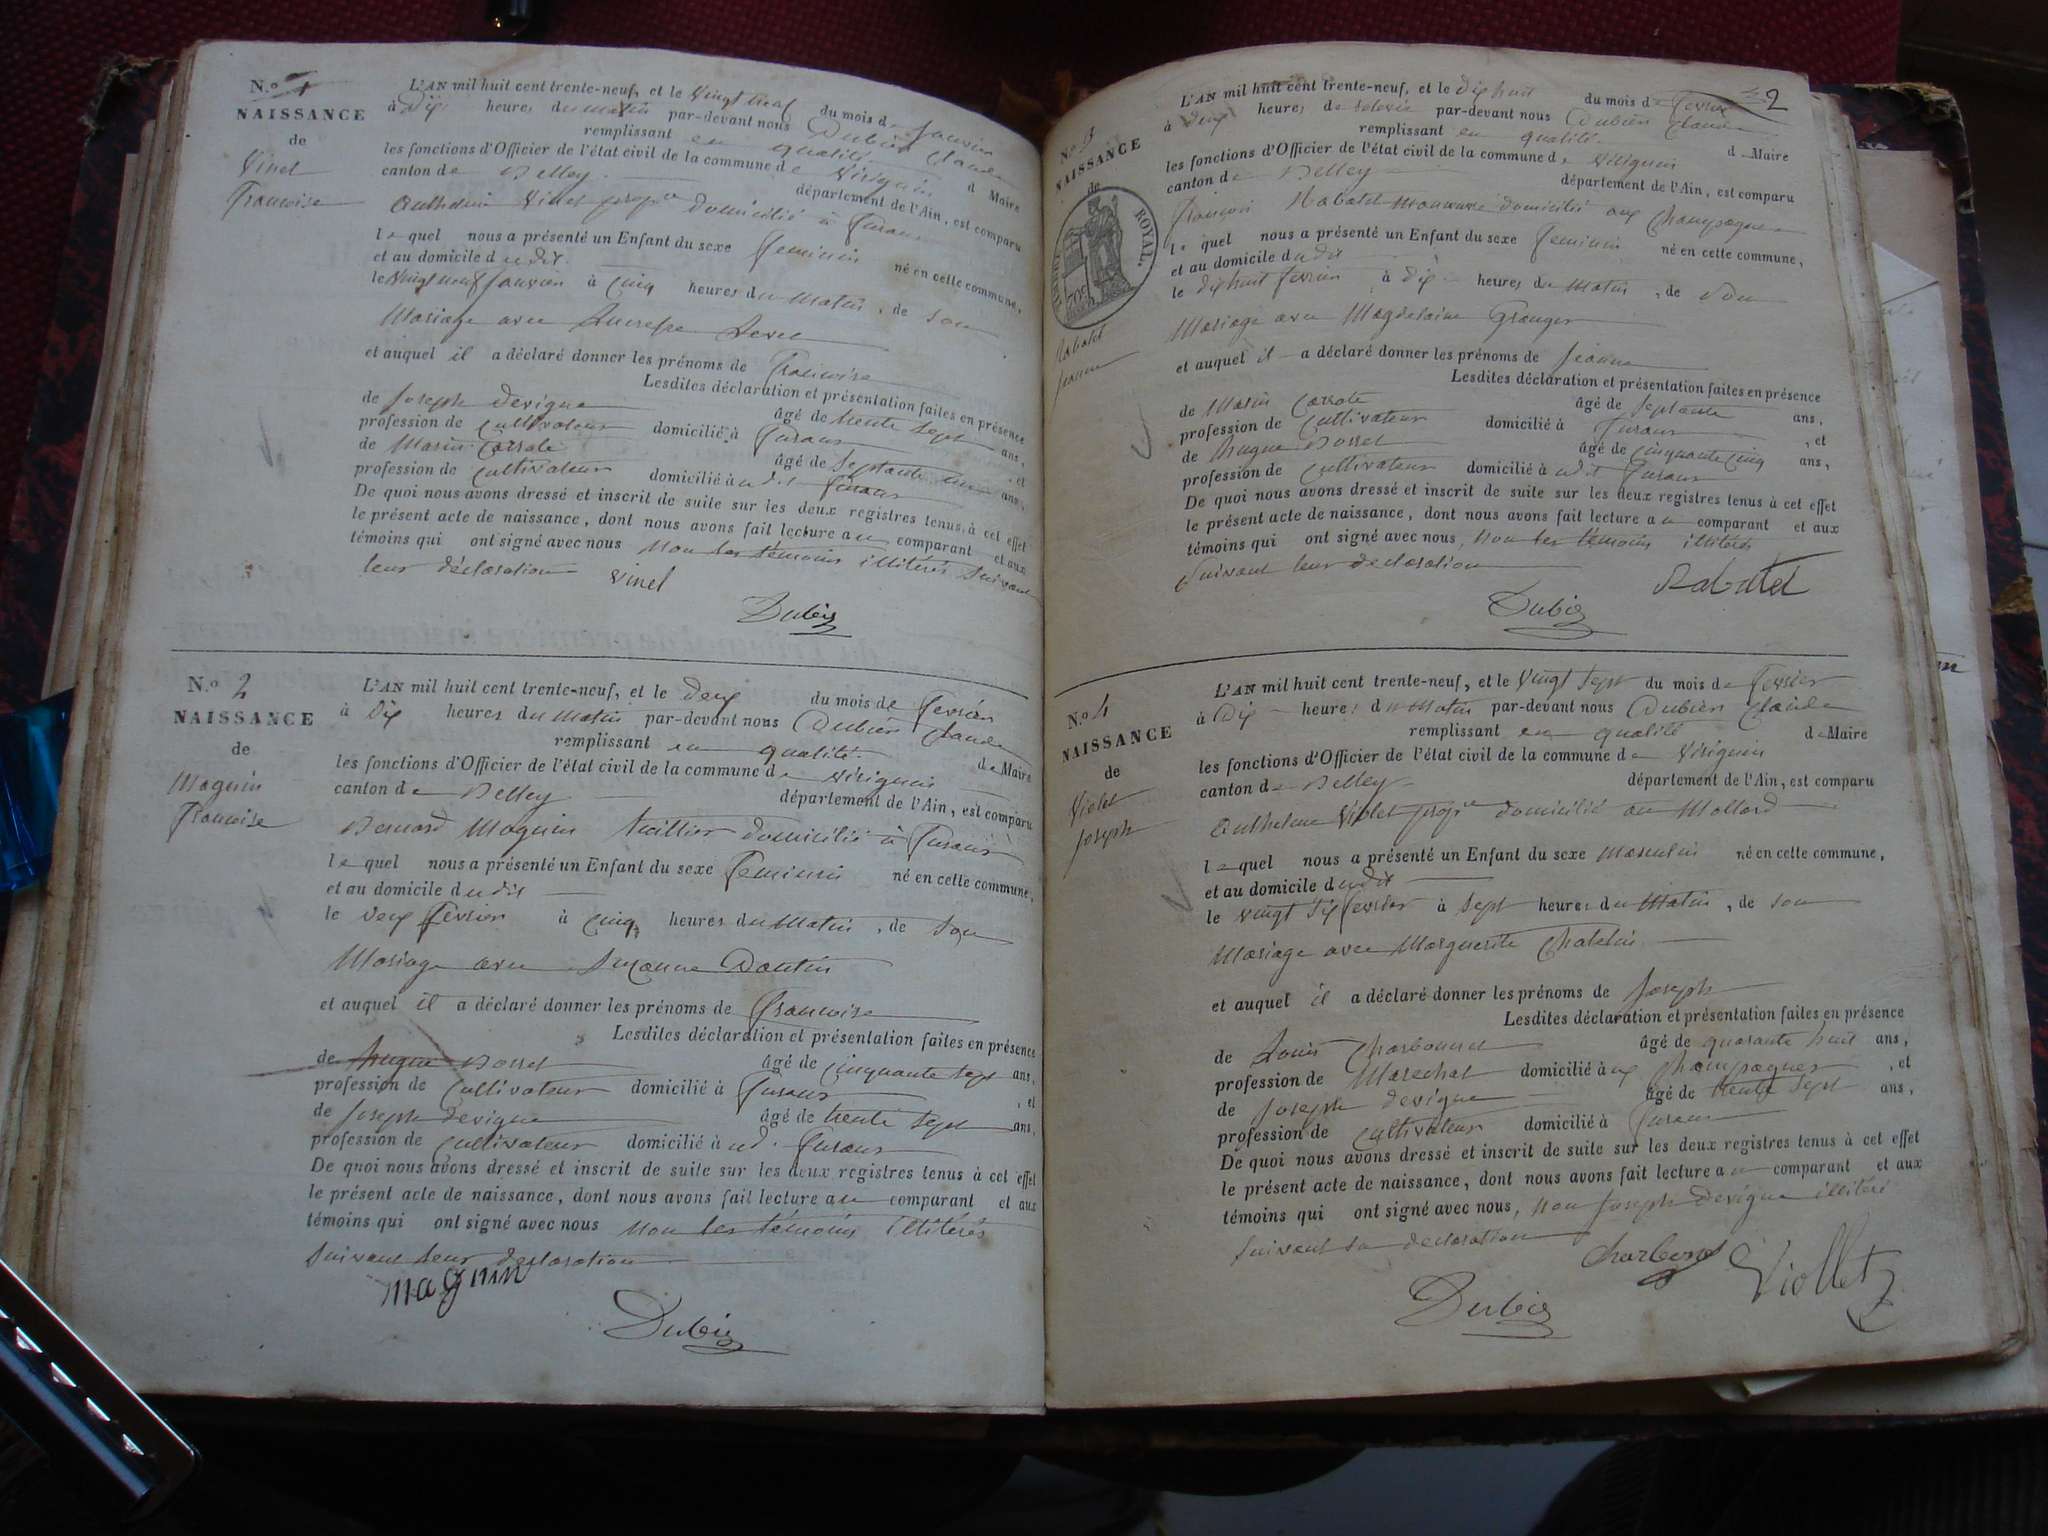 N.º 1
NAISSANCE
de
Vinel
Francoise
L'AN mil huit cent trente-neuf, et le Vingt neuf du mois de Janvier
à Dix heures du Matin par-devant nous Dubien Claude
remplissant en qualité de Maire
les fonctions d'Officier de l'état civil de la commune de Virignin
canton de Belley département de l'Ain, est comparu
Anthelme Vinel prop.re domicilié à furans
le quel nous a présenté un Enfant du sexe feminin né en cette commune,
et au domicile dudit
le Vingt neuf Janvier à cinq heures du Matin, de son
Mariage avec
et auquel il a déclaré donner les prénoms de Francoise
Lesdites déclaration et présentation faites en présence
de Joseph devigne âgé de trente sept ans,
profession de Cultivateur domicilié à furans, et
de Marin Carrote âgé de septante un ans,
profession de Cultivateur domicilié à udit furans
De quoi nous avons dressé et inscrit de suite sur les deux registres tenus à cet effet
le présent acte de naissance, dont nous avons fait lecture au comparant et aux
témoins qui ont signé avec nous Non les témoins illitérés suivant
leur déclaration vinel
Dubien
N.º 2
NAISSANCE
de
Magnin
Francoise
L'AN mil huit cent trente-neuf, et le deux du mois de fevrier
à Dix heures du Matin par-devant nous Dubien Claude
remplissant en qualité de Maire
les fonctions d'Officier de l'état civil de la commune de Virignin
canton de Belley département de l'Ain, est comparu
Bernard Magnin domicilié à furans
le quel nous a présenté un Enfant du sexe feminin né en cette commune,
et au domicile dudit
le deux fevrier à cinq heures du Matin, de son
Mariage avec Suzanne Dantin
et auquel il a déclaré donner les prénoms de francoise
Lesdites déclaration et présentation faites en présence
de hugue Bosset âgé de cinquante sept ans,
profession de Cultivateur domicilié à furans, et
de Joseph devigne âgé de trente sept ans,
profession de Cultivateur domicilié à ud. furans
De quoi nous avons dressé et inscrit de suite sur les deux registres tenus à cet effet
le présent acte de naissance, dont nous avons fait lecture au comparant et aux
témoins qui ont signé avec nous Non les témoins illitérés
suivant leur declaration
magnin
Dubien
2
N.º 3
NAISSANCE
de
ROYAL.
TIMBRE
Rabatel
Jeanne
L'AN mil huit cent trente-neuf, et le dix huit du mois de fevrier
à deux heures de par-devant nous Dubien Claude
remplissant en qualité de Maire
les fonctions d'Officier de l'état civil de la commune de Virignin
canton de Belley département de l'Ain, est comparu
françois Rabatel domicilié aux Champagnes
le quel nous a présenté un Enfant du sexe feminin né en cette commune,
et au domicile dudit
le dix huit fevrier à dix heures du Matin, de son
Mariage avec Magdelaine Granger
et auquel il a déclaré donner les prénoms de Jeanne
Lesdites déclaration et présentation faites en présence
de Marin Carrote âgé de septante ans,
profession de Cultivateur domicilié à furans, et
de hugue Bosset âgé de cinquante cinq ans,
profession de Cultivateur domicilié à udit furans
De quoi nous avons dressé et inscrit de suite sur les deux registres tenus à cet effet
le présent acte de naissance, dont nous avons fait lecture au comparant et aux
témoins qui ont signé avec nous, Non les témoins illitérés
suivant leur declaration Rabatel
Dubien
N.º 4
NAISSANCE
de
Violet
Joseph
L'AN mil huit cent trente-neuf, et le Vingt sept du mois de fevrier
à Dix heures du Matin par-devant nous Dubien Claude
remplissant en qualité de Maire
les fonctions d'Officier de l'état civil de la commune de Virignin
canton de Belley département de l'Ain, est comparu
Anthelme Violet prop.re domicilié au Mollard
le quel nous a présenté un Enfant du sexe Masculin né en cette commune,
et au domicile dudit
le vingt six fevrier à sept heures du Matin, de son
Mariage avec Marguerite Chatelin
et auquel il a déclaré donner les prénoms de Joseph
Lesdites déclaration et présentation faites en présence
de Louis Charbonnet âgé de quarante huit ans,
profession de Marechal domicilié aux Champagnes, et
de Joseph devigne âgé de trente sept ans,
profession de Cultivateur domicilié à furans
De quoi nous avons dressé et inscrit de suite sur les deux registres tenus à cet effet
le présent acte de naissance, dont nous avons fait lecture au comparant et aux
témoins qui ont signé avec nous, Non Joseph devigne illitéré
suivant sa declaration
Charbonet Viollet
Dubien